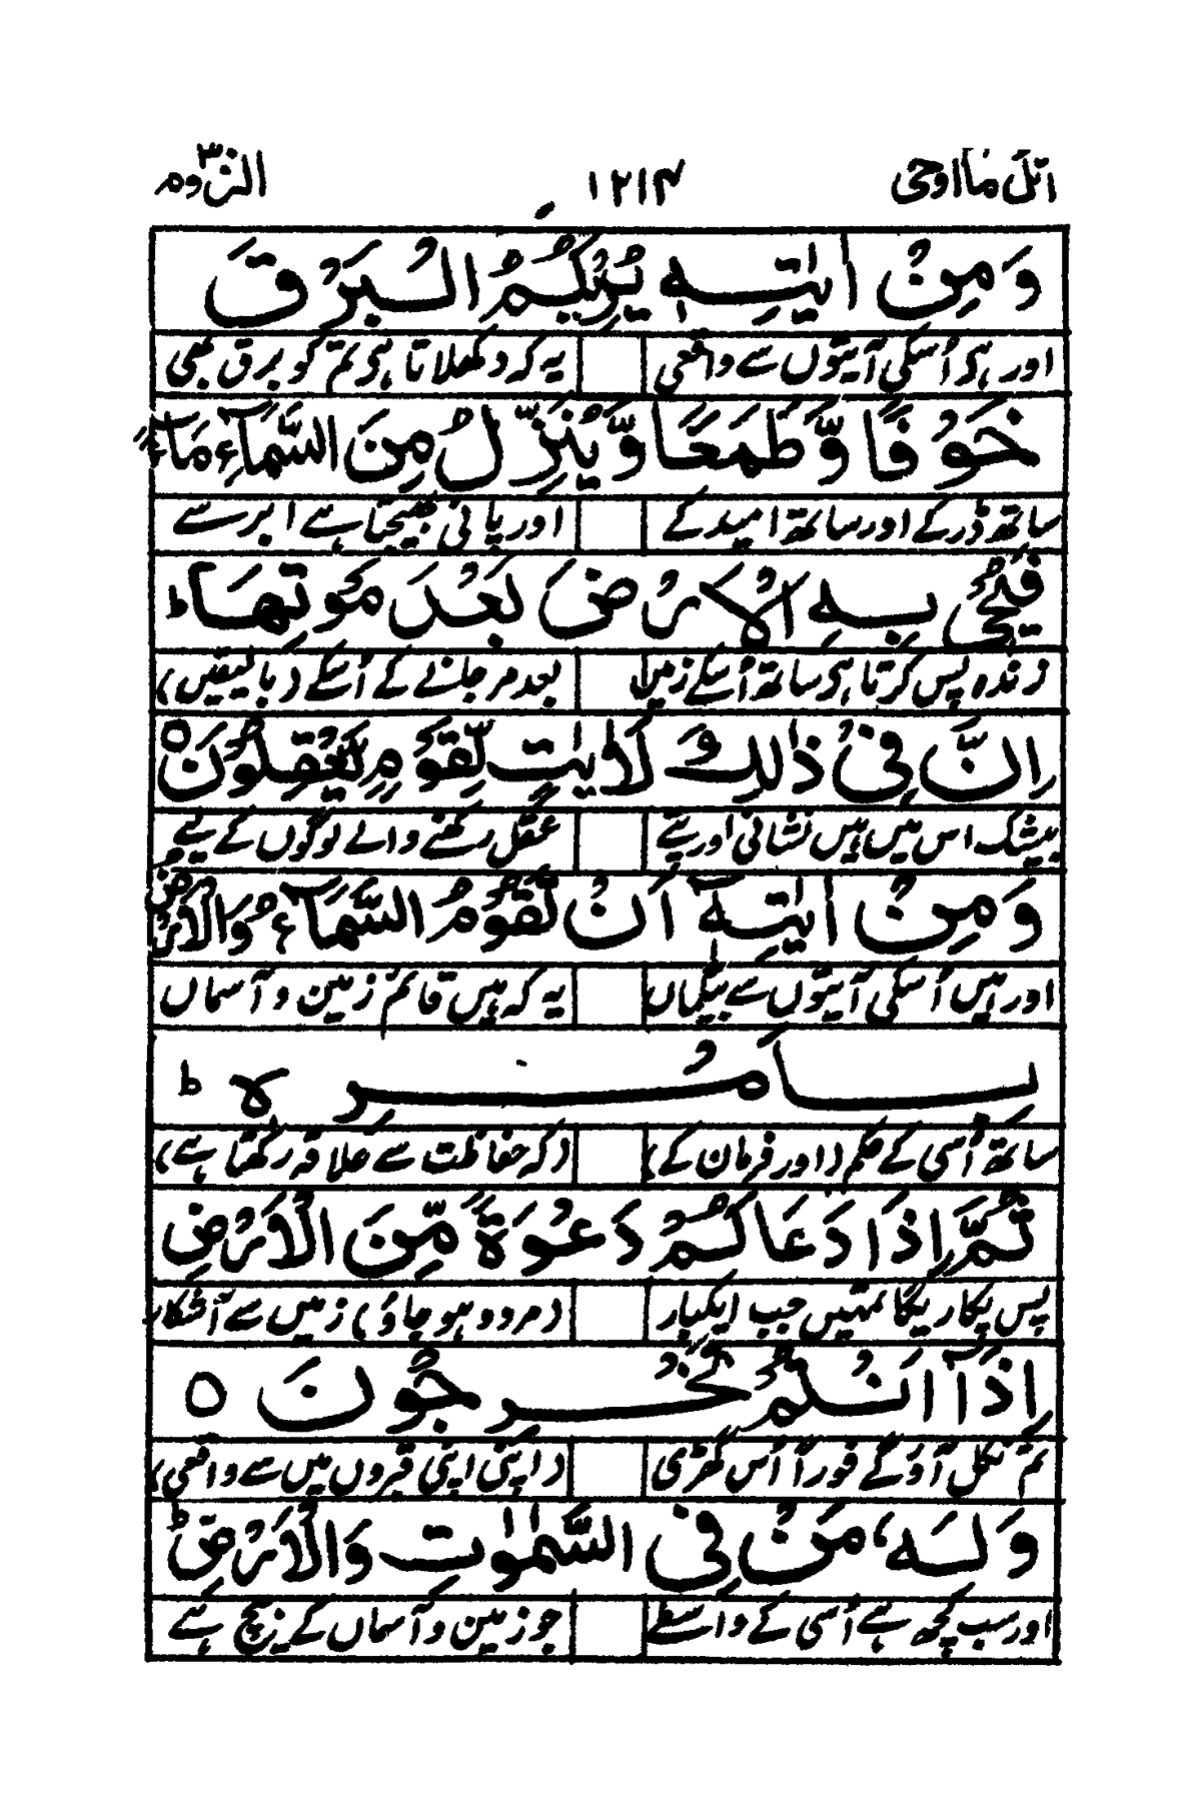 اتل ما اوحی ۱۲۱۴ الروم ۳۰
وَمِنْ اٰیٰتِهٖ یُرِیْکُمُ الْبَرْقَ
اور ہی اُسکی آیتوں سے واقعی یہ کہ دکھلاتا ہی تم کو برق بھی
خَوْفًا وَّطَمَعًا وَّیُنَزِّلُ مِنَ السَّمَآءِ مَآءً
ساتھ ڈر کے اور ساتھ امید کے اور پانی بھیجتا ہے ابر سے
فَیُحْیٖ بِهِ الْاَرْضَ بَعْدَ مَوْتِهَا ؕ
زندہ پس کرتا ہی ساتھ اُسکے زمیں بعد مر جانے کے اُسکے (بالیقیں)
اِنَّ فِیْ ذٰلِكَ لَاٰیٰتٍ لِّقَوْمٍ یَّعْقِلُوْنَ ۝
بیشک اس میں ہیں نشانی اور پتے عقل رکھنے والے لوگوں کے لیے
وَمِنْ اٰیٰتِهٖۤ اَنْ تَقُوْمَ السَّمَآءُ وَالْاَرْضُ
اور ہیں اُسکی آیتوں سے بیگماں یہ کہ ہیں قائم زمین و آسماں
بِاَمْرِهٖ ؕ
ساتھ اُسی کے حکم (اور فرمان کے) (کہ حفاظت سے علاقہ رکھتا ہے)
ثُمَّ اِذَا دَعَاکُمْ دَعْوَةً مِّنَ الْاَرْضِ
پس پکاریگا تمہیں جب ایکبار (مردو ہو جاؤ) زمیں سے آشکار
اِذَاۤ اَنْتُمْ تَخْرُجُوْنَ ۝
تم نکل آؤ گے فوراً اُس گھڑی (اپنی اپنی قبروں میں سے واقعی)
وَلَهٗ مَنْ فِی السَّمٰوٰتِ وَالْاَرْضِ ؕ
اور سب کچھ ہے اُسی کے واسطے جو زمین و آسماں کے بیچ ہے